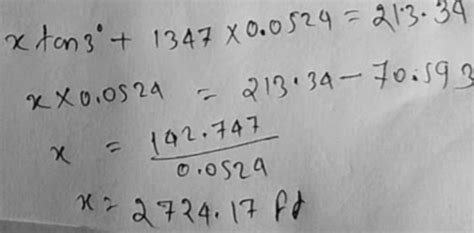 x tan3° + 1347 × 0.0524 = 213.34
x × 0.0524 = 213.34 - 70.593
x = 142.747 / 0.0524
x = 2724.17 ft